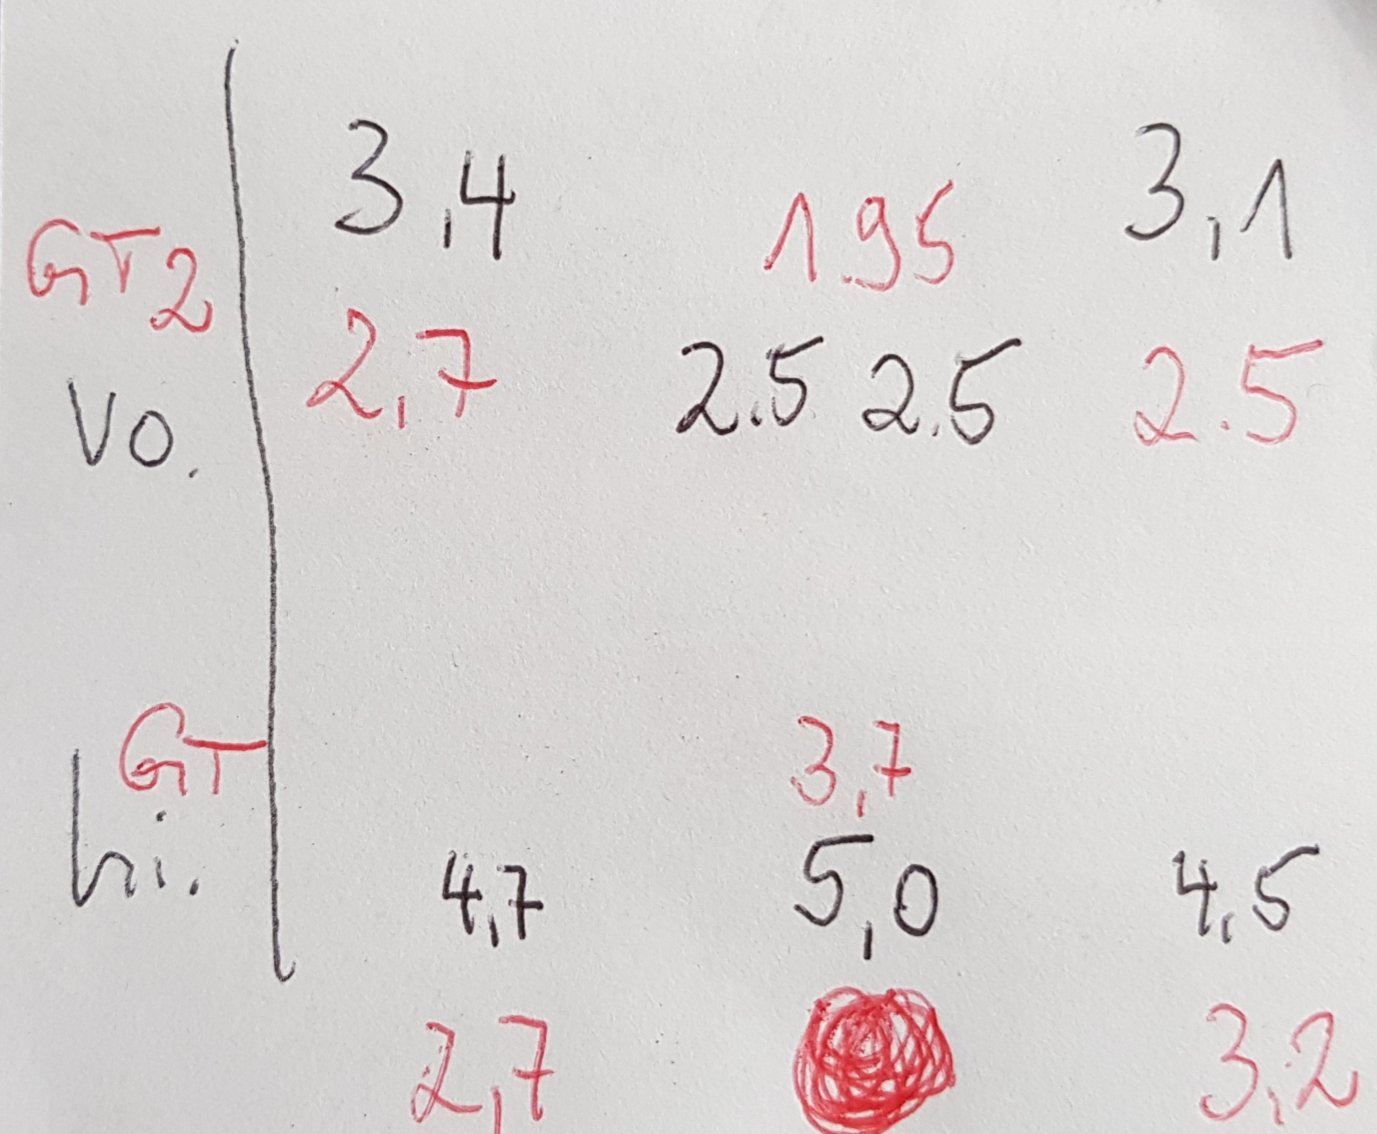 3,4 195 3,1
GT2 2,7 2.5 2.5 2.5
Vo.
GT 3,7
hi. 4,7 5,0 4,5
2,7 3,2